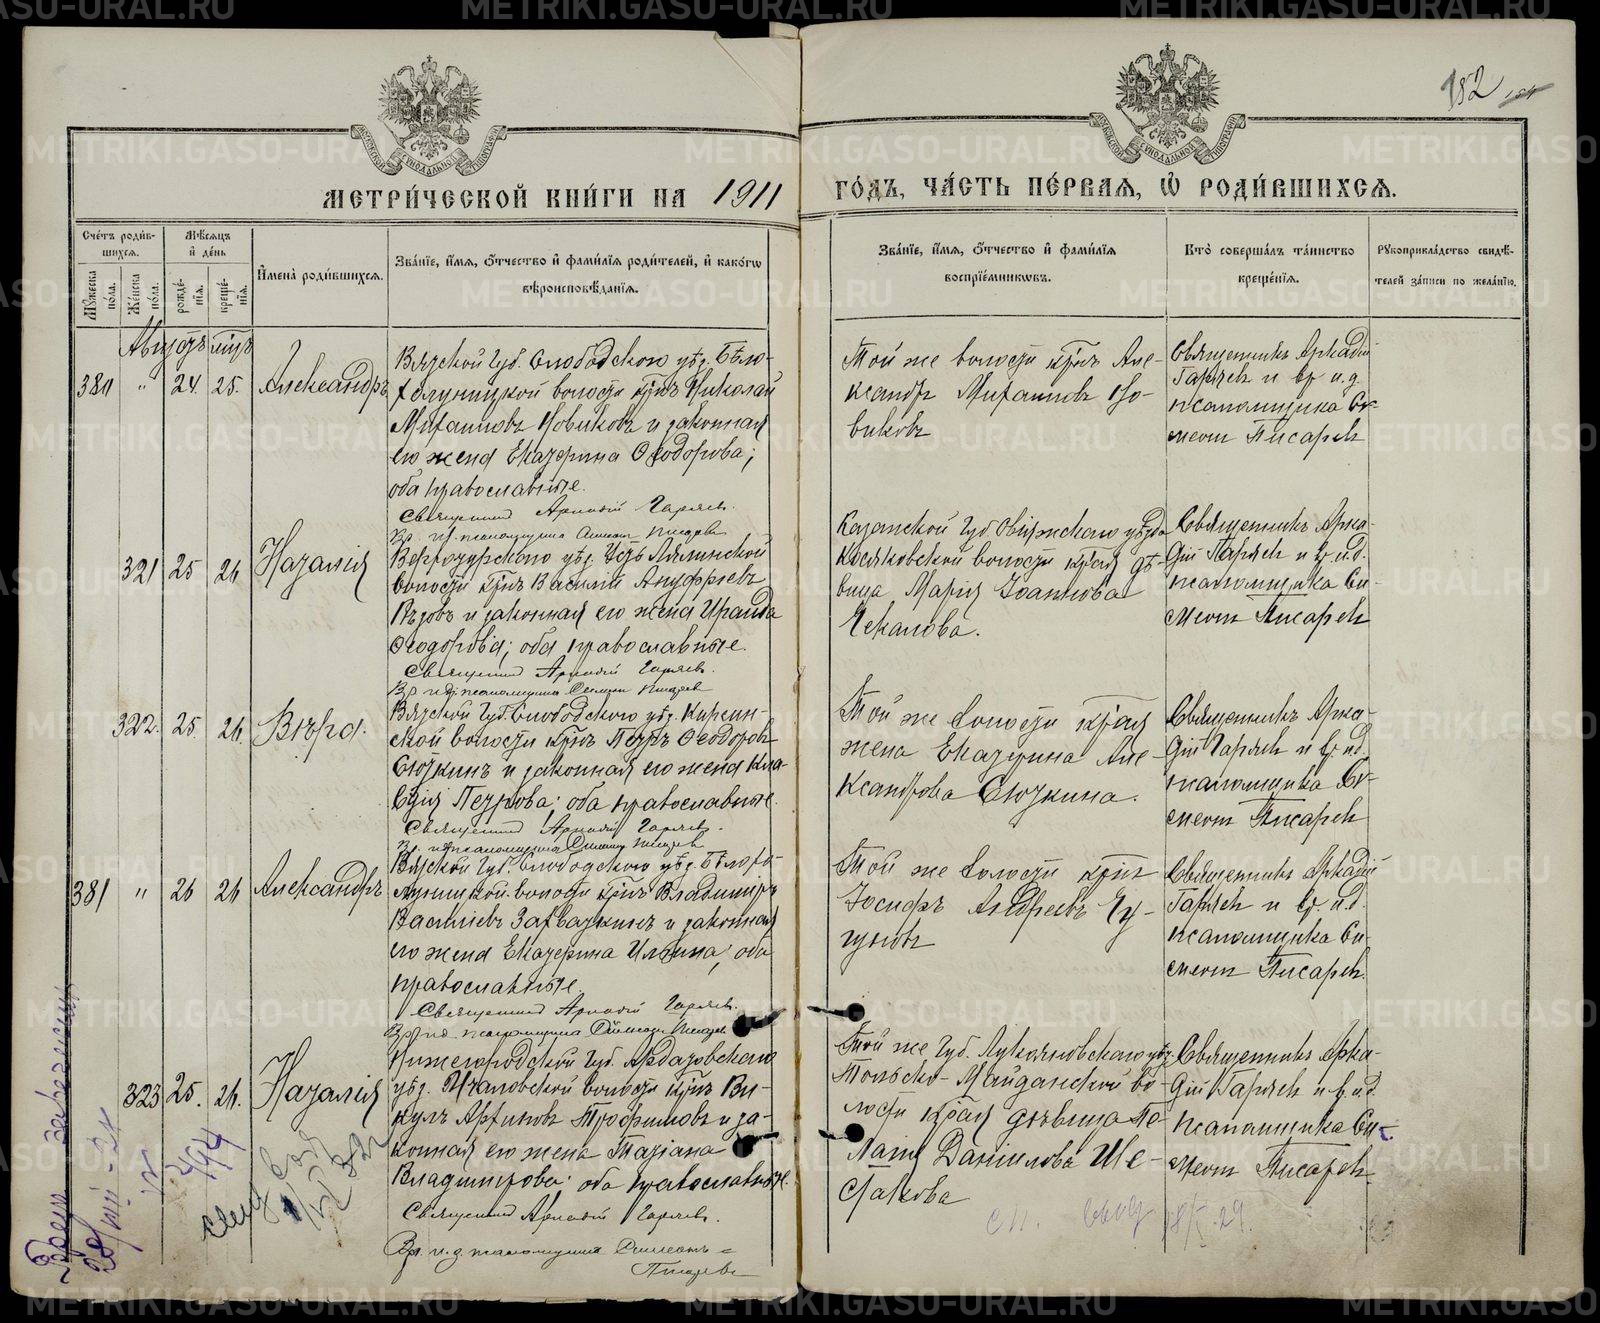 182
МЕТРИ́ЧЕСКОЙ КНИ́ГИ НА 1911 ГО́ДЪ, ЧА́СТЬ ПЕ́РВАЯ, Ѡ҆ РОДИ́ВШИХСЯ.
Сче́тъ роди́в-
шихся.
Мꙋ́жеска по́ла.
Же́нска по́ла.
Мѣ́сяцъ
и҆ де́нь
рожде́-
нїя.
креще́-
нїя.
И҆мена̀ роди́вшихся.
Зва́нїе, и҆́мя, ѻ҆́тчество и҆ фами́лїя роди́телей, и҆ како́гѡ
вѣроисповѣ́данїя.
Зва́нїе, и҆́мя, ѻ҆́тчество и҆ фами́лїя
воспрїе́мниковъ.
Кто̀ соверша́лъ та́инство
креще́нїя.
Рꙋкоприкла́дство свидѣ́-
телей за́писи по жела́нїю.
Августъ мцъ
380 " 24. 25. Александръ
Вятской губ. Слободского уѣз. Бѣло-
холуницкой волости крнъ Николай
Михаиловъ Новиковъ и законная
его жена Екатерина Ѳеодорова;
оба православные.
Священникъ Аркадій Гаряевъ.
Вр. и.д. псаломщика Симеонъ Писаревъ
Той же волости крнъ Але-
ксандръ Михаиловъ Но-
виковъ
Священникъ Аркадій
Гаряевъ и вр. и.д.
псаломщика Си-
меонъ Писаревъ
321 25 26 Наталія
Верхотурскаго уѣз. Усть-Лялинской
волости крнъ Василій Ануфріевъ
и законная его жена Ираида
Ѳеодорова; оба православные.
Священникъ Аркадій Гаряевъ.
Вр. и.д. псаломщика Симеонъ Писаревъ
Казанской губ. Свіяжскаго уѣзда
волости крнка дѣ-
вица Марія Іоаннова
Чекалова.
Священникъ Арка-
дій Гаряевъ и вр. и.д.
псаломщика Си-
меонъ Писаревъ
322. 25. 26. Вѣра.
Вятской губ. Слободского уѣз.
ской волости крнъ Петръ Ѳеодоровъ
Сюткинъ и законная его жена Кла-
вдія Петрова; оба православные.
Священникъ Аркадій Гаряевъ.
Вр. и.д. псаломщика Симеонъ Писаревъ
Той же волости крнка
жена Екатерина Але-
ксандрова Сюткина.
Священникъ Арка-
дій Гаряевъ и вр. и.д.
псаломщика Си-
меонъ Писаревъ
381 " 26 26 Александръ
Вятской губ. Слободского уѣз. Бѣлохо-
луницкой волости крнъ Владиміръ
Василіевъ и законная
его жена Екатерина Ильина; оба
православные.
Священникъ Аркадій Гаряевъ.
Вр. и.д. псаломщика Симеонъ Писаревъ
Той же волости крнъ
Іосифъ Андреевъ Чу-
гуновъ
Священникъ Аркадій
Гаряевъ и вр. и.д.
псаломщика Си-
меонъ Писаревъ.
323 25. 26. Наталія
Нижегородской губ. Ардатовскаго
уѣз. волости крнъ Ви-
кулъ Трофимовъ и за-
конная его жена Татіана
Владимірова; оба православные.
Священникъ Аркадій Гаряевъ.
Вр. и.д. псаломщика Симеонъ
Писаревъ
Той же губ. Лукояновскаго уѣз.
Польско-Майданской во-
лости крнка дѣвица Пе-
лагія Даніилова Ше-
стакова
Священникъ Арка-
дій Гаряевъ и вр. и.д.
псаломщика Си-
меонъ Писаревъ
METRIKI.GASO-URAL.RU